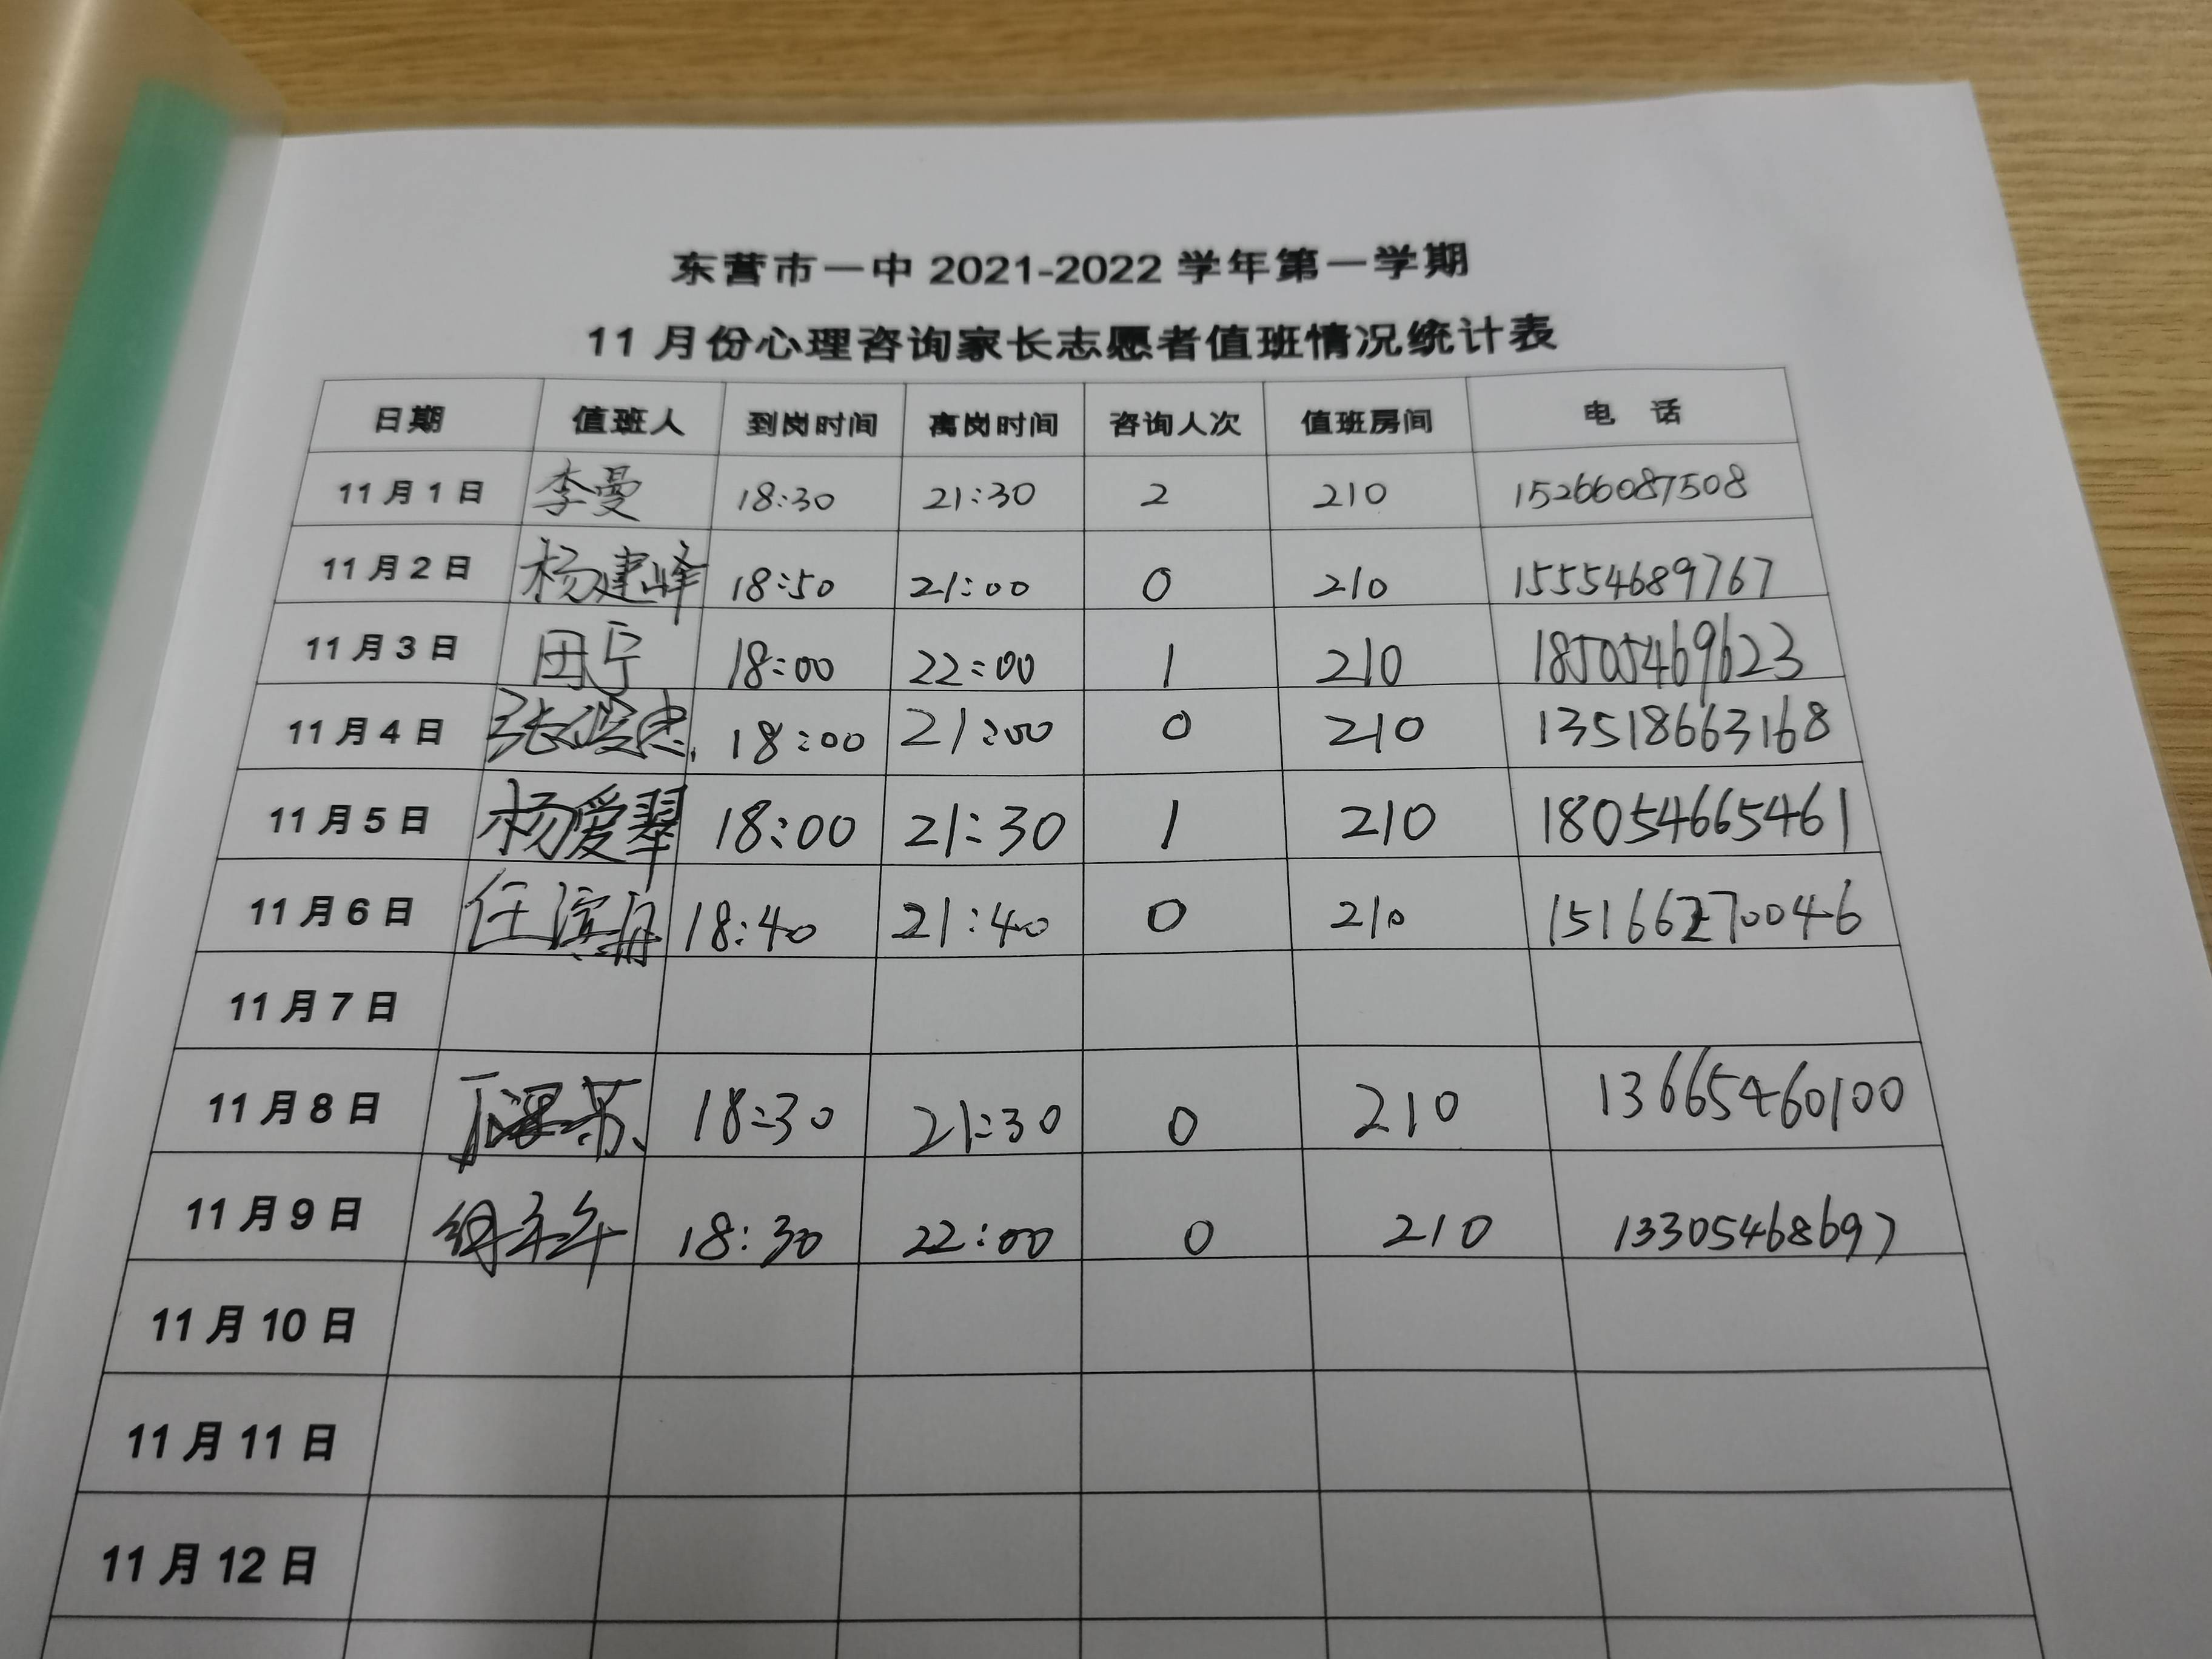 东营市一中 2021-2022 学年第一学期
11 月份心理咨询家长志愿者值班情况统计表
日期 值班人 到岗时间 离岗时间 咨询人次 值班房间 电 话
11 月 1 日 李曼 18:30 21:30 2 210 15266087508
11 月 2 日 杨建峰 18:50 21:00 0 210 15554689767
11 月 3 日 田宁 18:00 22:00 1 210 18505469623
11 月 4 日 18:00 21:00 0 210 13518663168
11 月 5 日 杨爱翠 18:00 21:30 1 210 18054665461
11 月 6 日 任滨丹 18:40 21:40 0 210 15166270046
11 月 7 日
11 月 8 日 18:30 21:30 0 210 13665460100
11 月 9 日 18:30 22:00 0 210 13305468697
11 月 10 日
11 月 11 日
11 月 12 日